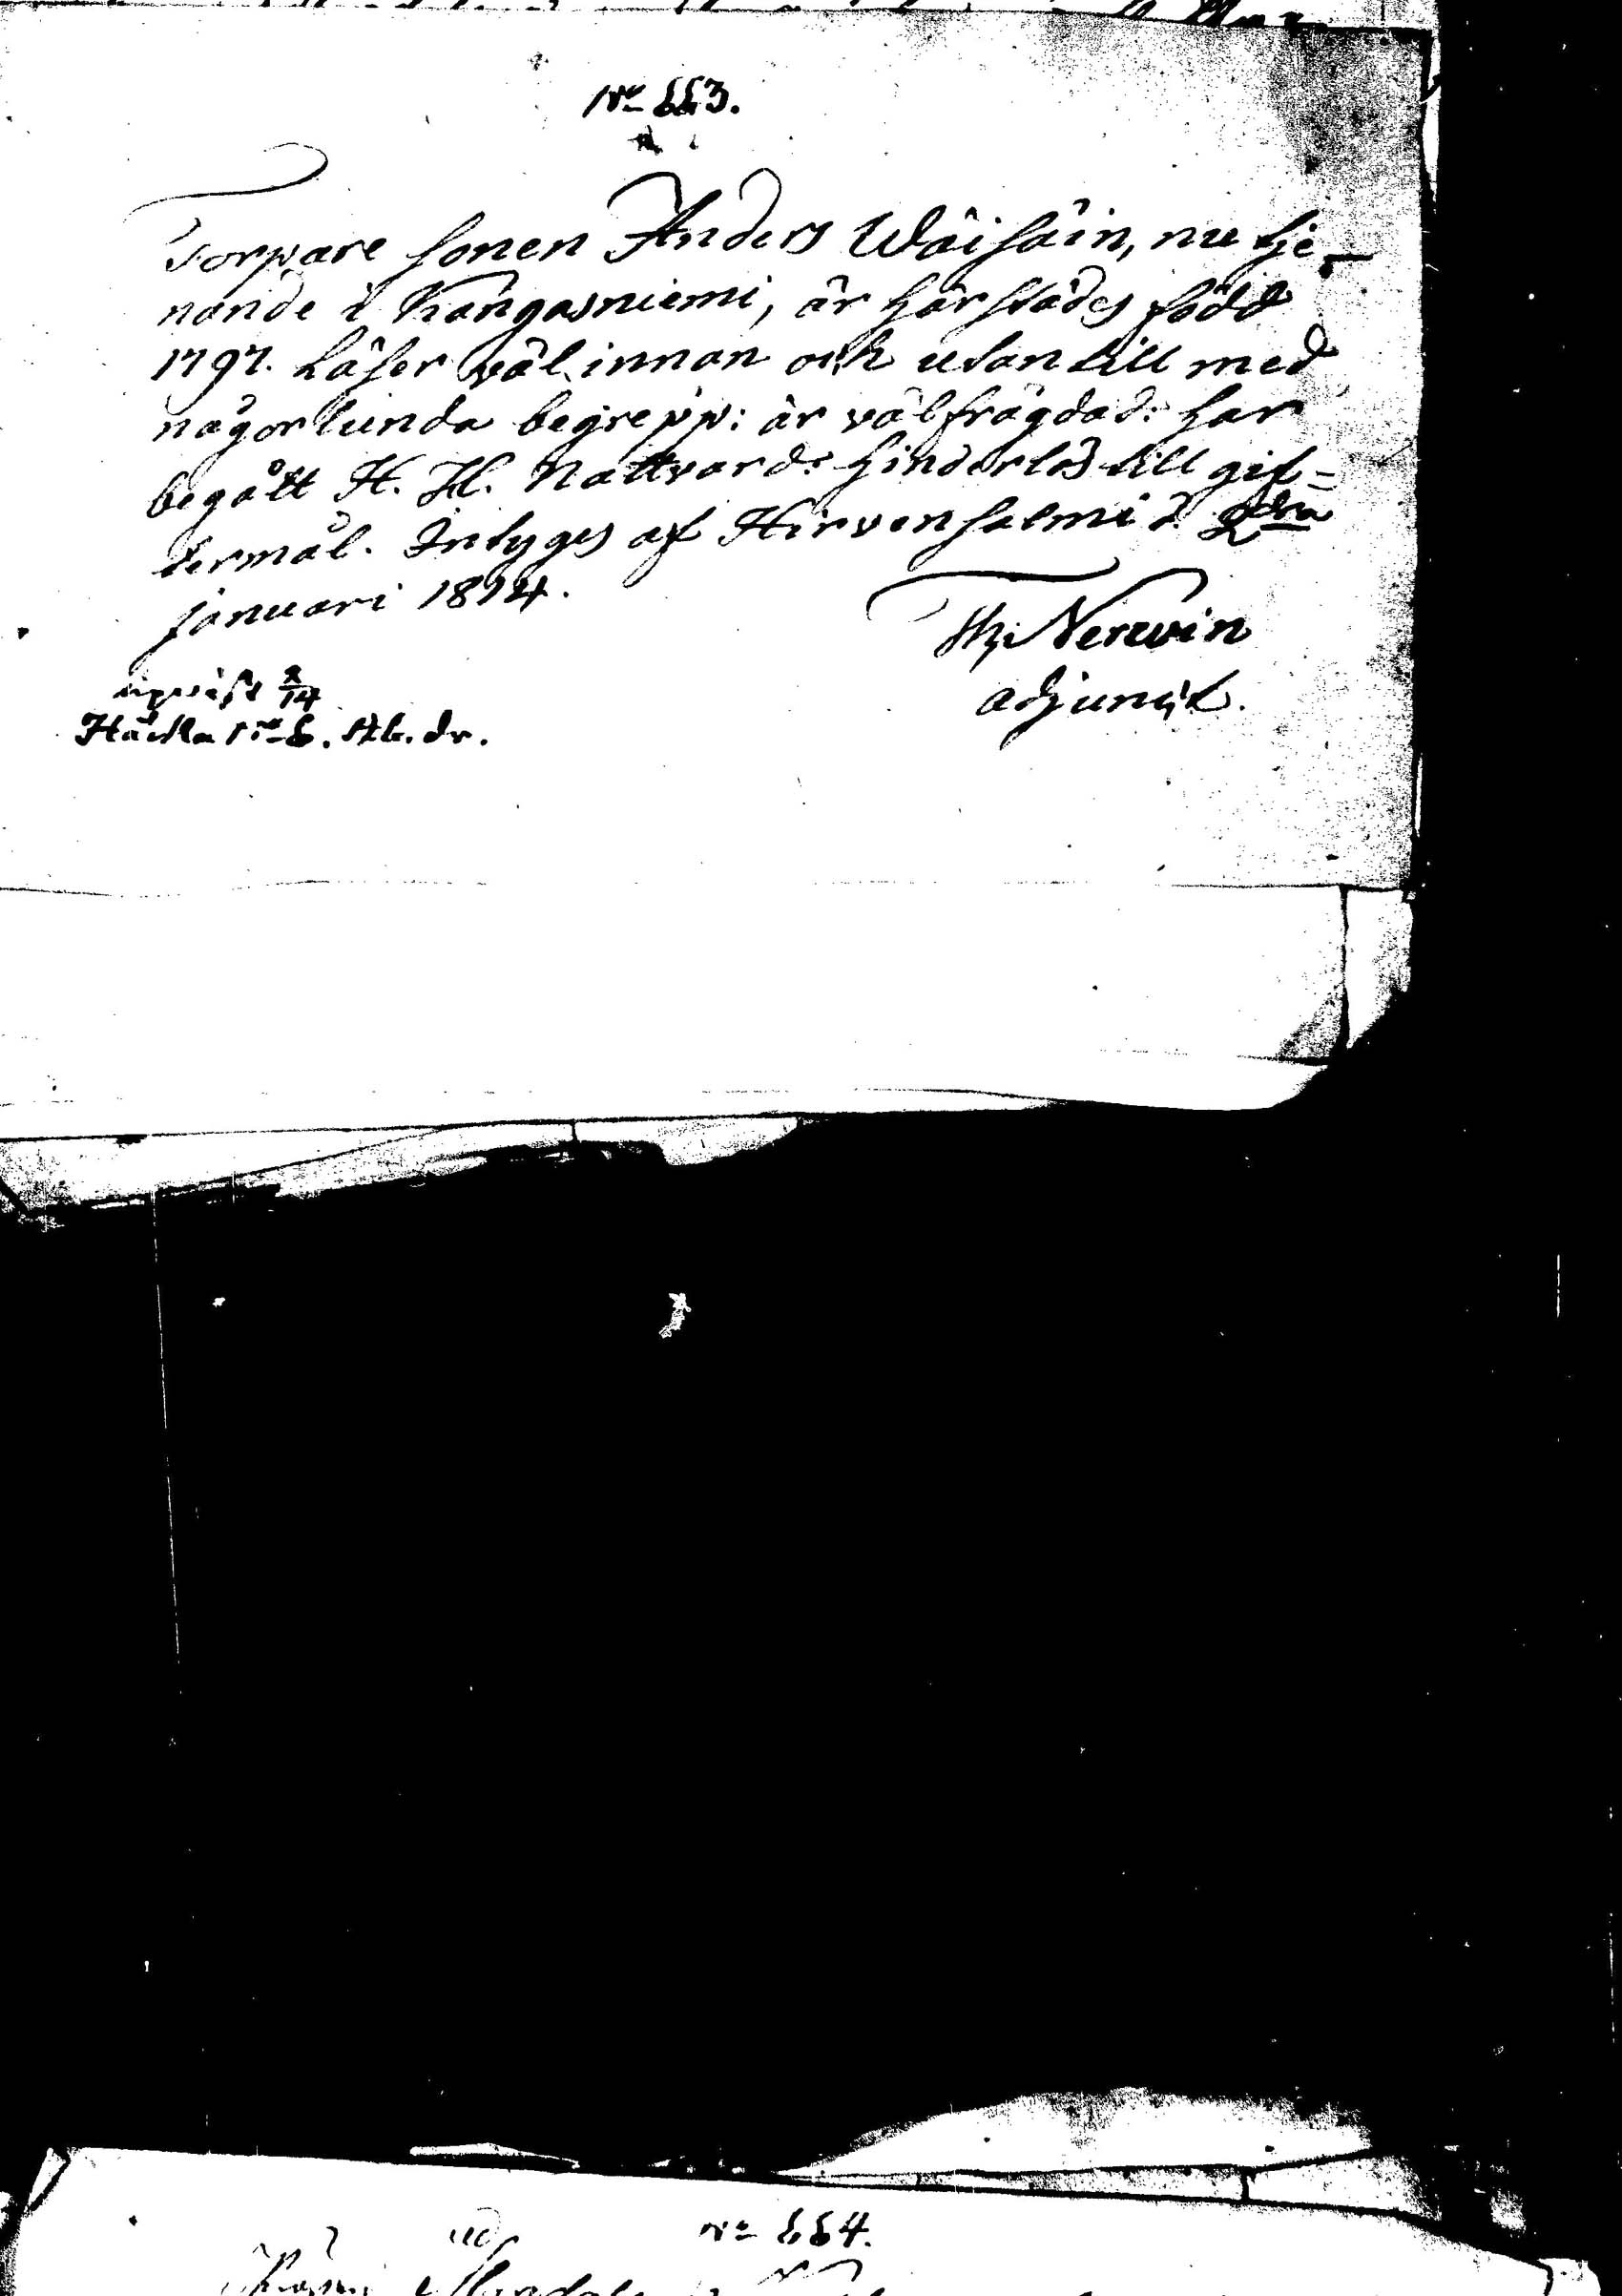 No 663.
Torpare sonen Anders Wäisäin, nu tje-
nande i Kangasniemi, är härstädes född
1797. Läser väl innan och utantill med
någorlunda begrepp: är välfrägdad: har
begått H. H. Nattvard: hinderlös till gif=
termål. Intyges af Hirvensalmi d. 2dra
januari 1814.
Th. Nerwin
adjunct.
No 664.